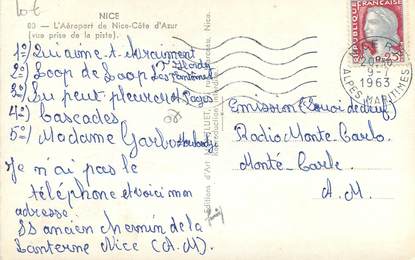 10 €
NICE
80 - L'Aéroport de Nice-Côte d'Azur
(vue prise de la piste).
1°) Qui aime-t-il vraiment J. Hallyday
2°) Loop de Loop Les Fantômes
3°) Tu peut pleurer Pagès
4°) Cascades
5°) Madame Garbo
Je n'ai pas le
téléphone et voici mon
adresse
88 ancien chemin de la
Lanterne Nice (A.M).
Editions d'Art
Nice.
REPUBLIQUE
FRANÇAISE
20H
9-7
1963
ALPES MARITIMES
Emission (Envoi de
Radio Monte Carlo
Monté-Carle
A.M.